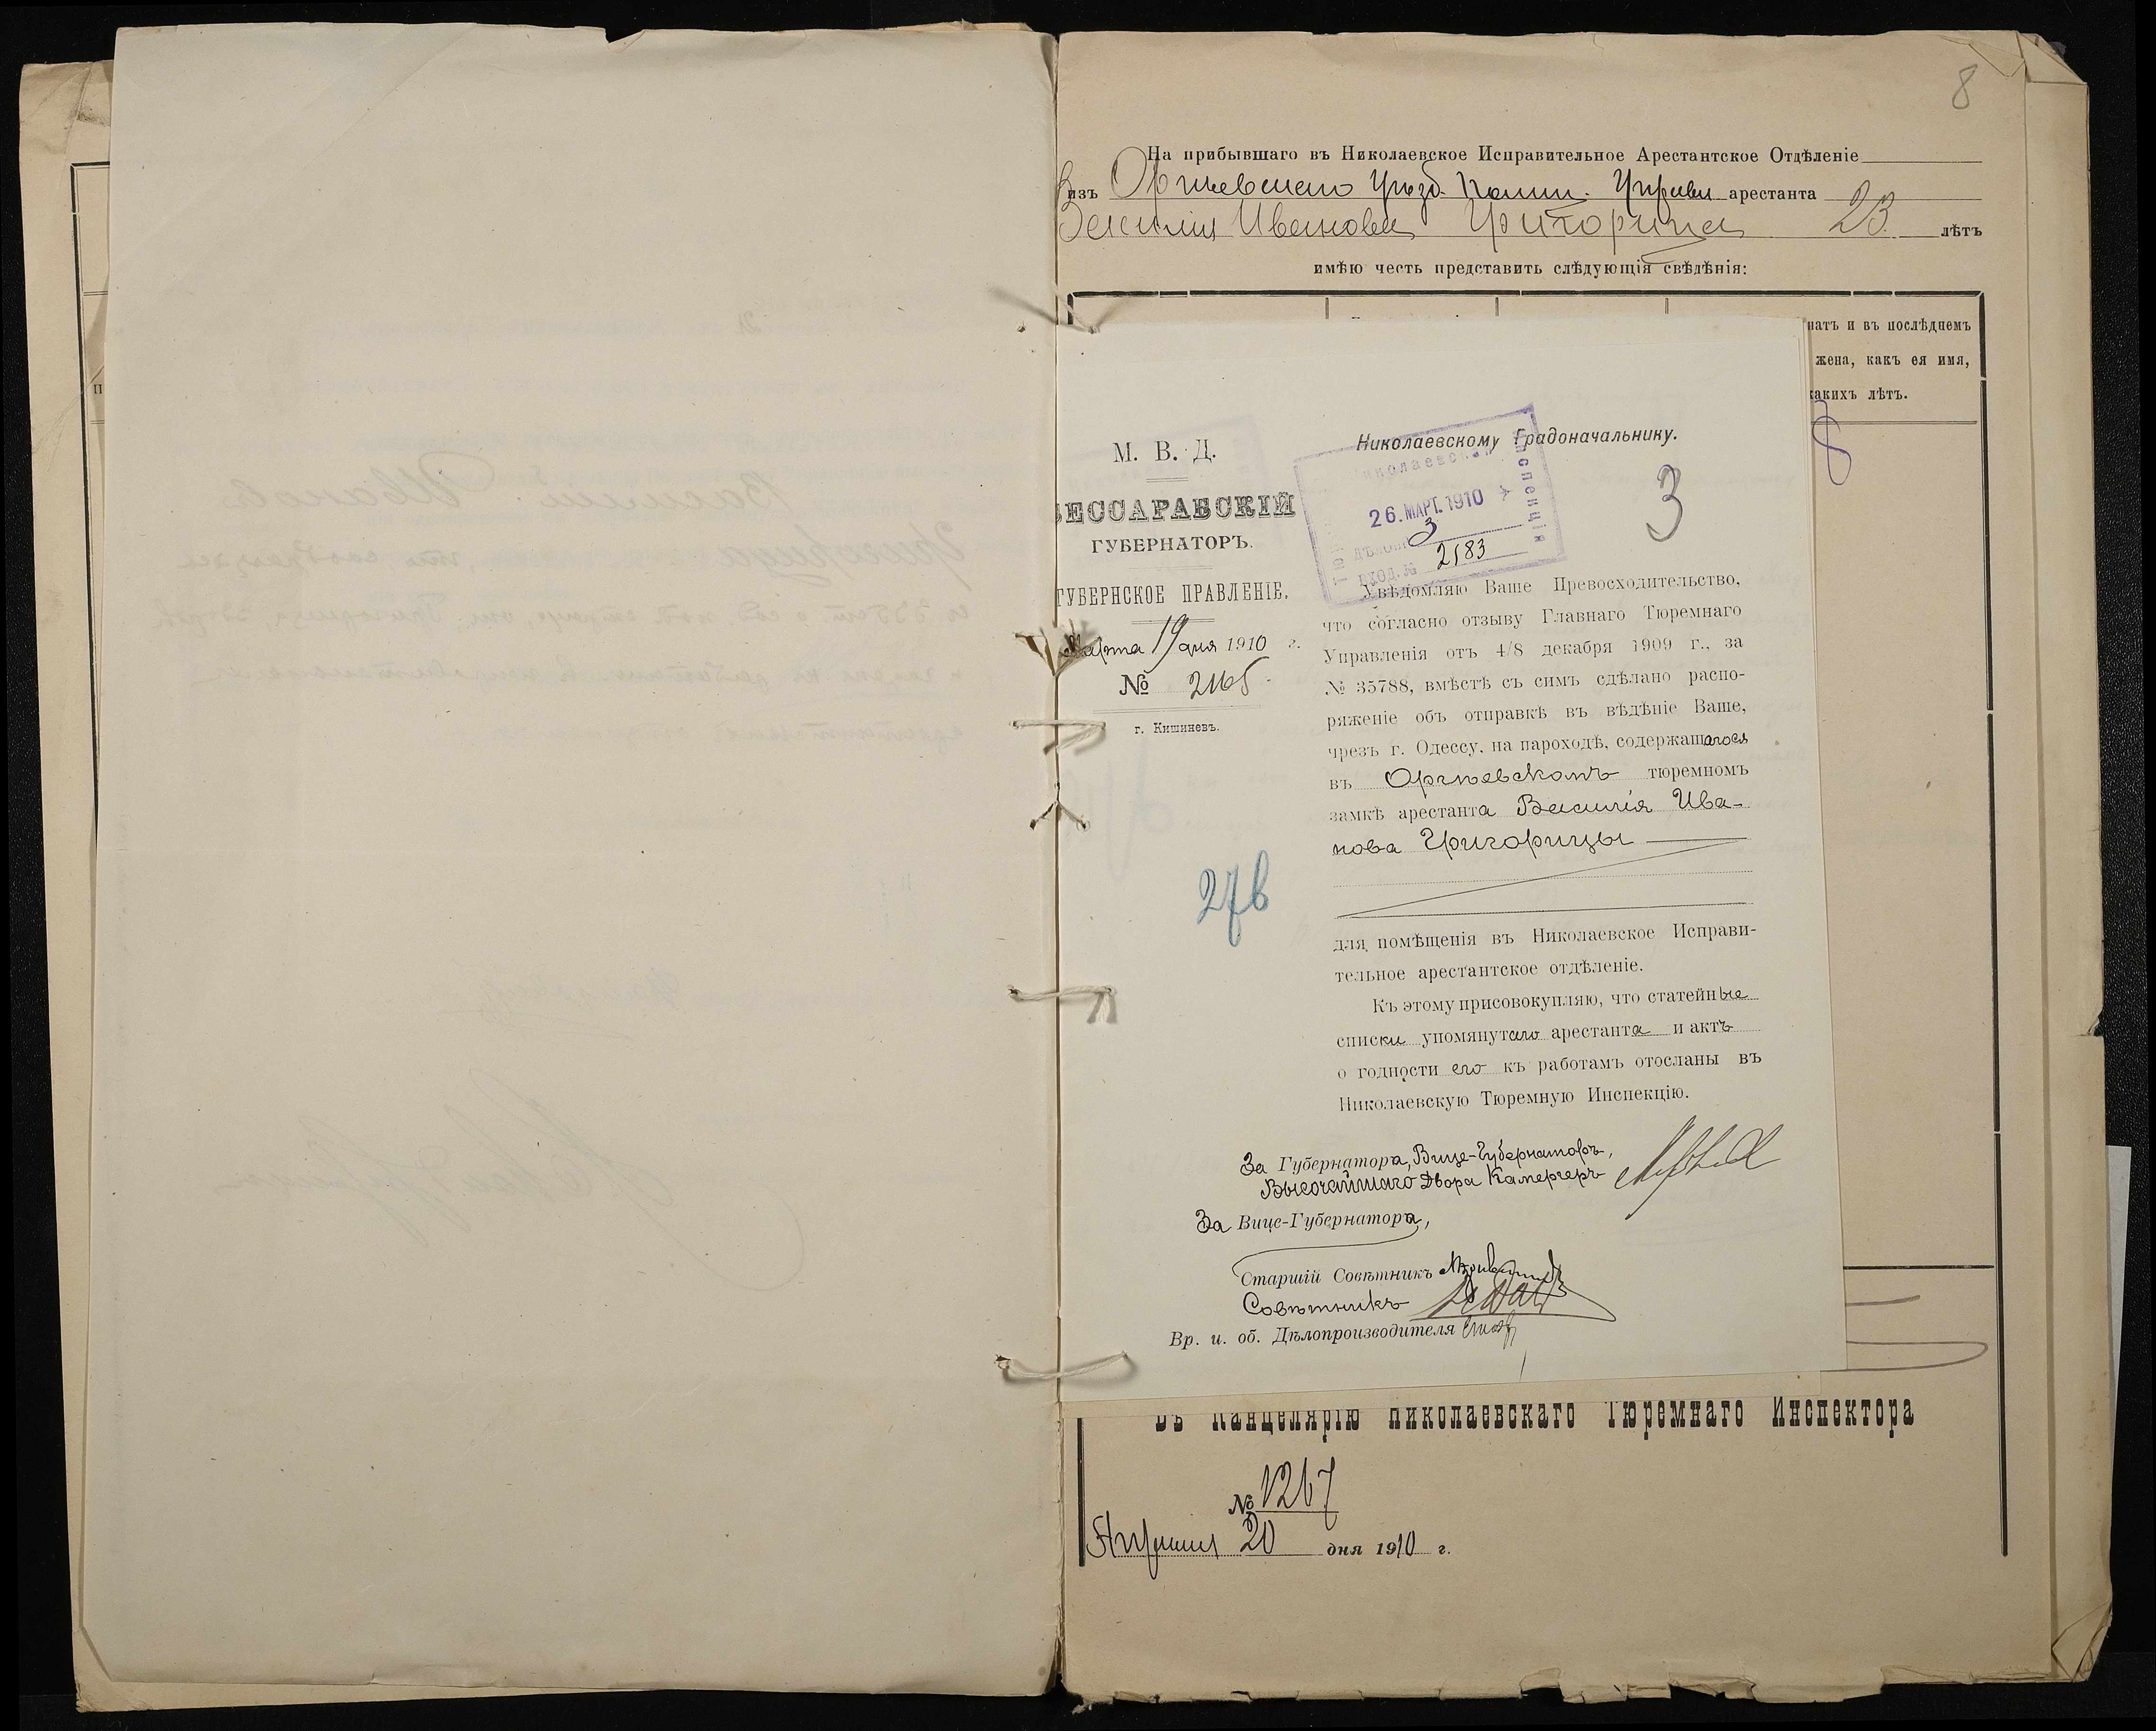 8
На прибывшаго въ Николаевское Исправительное Арестантское Отдѣленіе
изъ Оргѣевскаго Уѣзд. Полиц. Управы арестанта
Василія Иванова Григорица 23 лѣтъ
имѣю честь представить слѣдующія свѣдѣнія:
натъ и въ послѣднемъ
жена, какъ ея имя,
какихъ лѣтъ.
8
М. В. Д.
БЕССАРАБСКІЙ
ГУБЕРНАТОРЪ.
ГУБЕРНСКОЕ ПРАВЛЕНІЕ.
Марта 19 дня 1910 г.
№ 2165.
г. Кишиневъ.
276
Николаевскому Градоначальнику.
Николаевская
Инспекція
26. МАРТ. 1910
3
ВХОД. №
2183
3
Увѣдомляю Ваше Превосходительство,
что согласно отзыву Главнаго Тюремнаго
Управленія отъ 4/8 декабря 1909 г., за
№ 35788, вмѣстѣ съ симъ сдѣлано распо-
ряженіе объ отправкѣ въ вѣдѣніе Ваше,
чрезъ г. Одессу, на пароходѣ, содержащагося
въ Оргѣевскомъ тюремномъ
замкѣ арестанта Василія Ива-
нова Григорицы
для помѣщенія въ Николаевское Исправи-
тельное арестантское отдѣленіе.
Къ этому присовокупляю, что статейные
списки упомянутаго арестанта и актъ
о годности его къ работамъ отосланы въ
Николаевскую Тюремную Инспекцію.
За Губернатора, Вице-Губернаторъ,
Высочайшаго Двора Камергеръ
За Вице-Губернатора,
Старшій Совѣтникъ
Совѣтникъ
Вр. и. об. Дѣлопроизводителя
Въ Канцелярію Николаевскаго Тюремнаго Инспектора
№ 1267
Апрѣля 20 дня 1910 г.